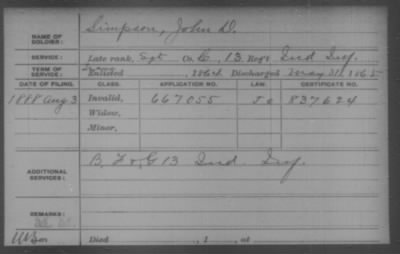 NAME OF SOLDIER: Simpson, John D.
SERVICE: Late rank, Sgt Co. C, 13 Reg't Ind Inf.
TERM OF SERVICE: Enlisted , 1864 Discharged May 31, 1865
DATE OF FILING. CLASS. APPLICATION NO. LAW. CERTIFICATE NO.
1888 Aug 3 Invalid, 667055 837624
Widow,
Minor,
ADDITIONAL SERVICES: B, F & G 13 Ind. Inf.
REMARKS:
Died , 1 , at